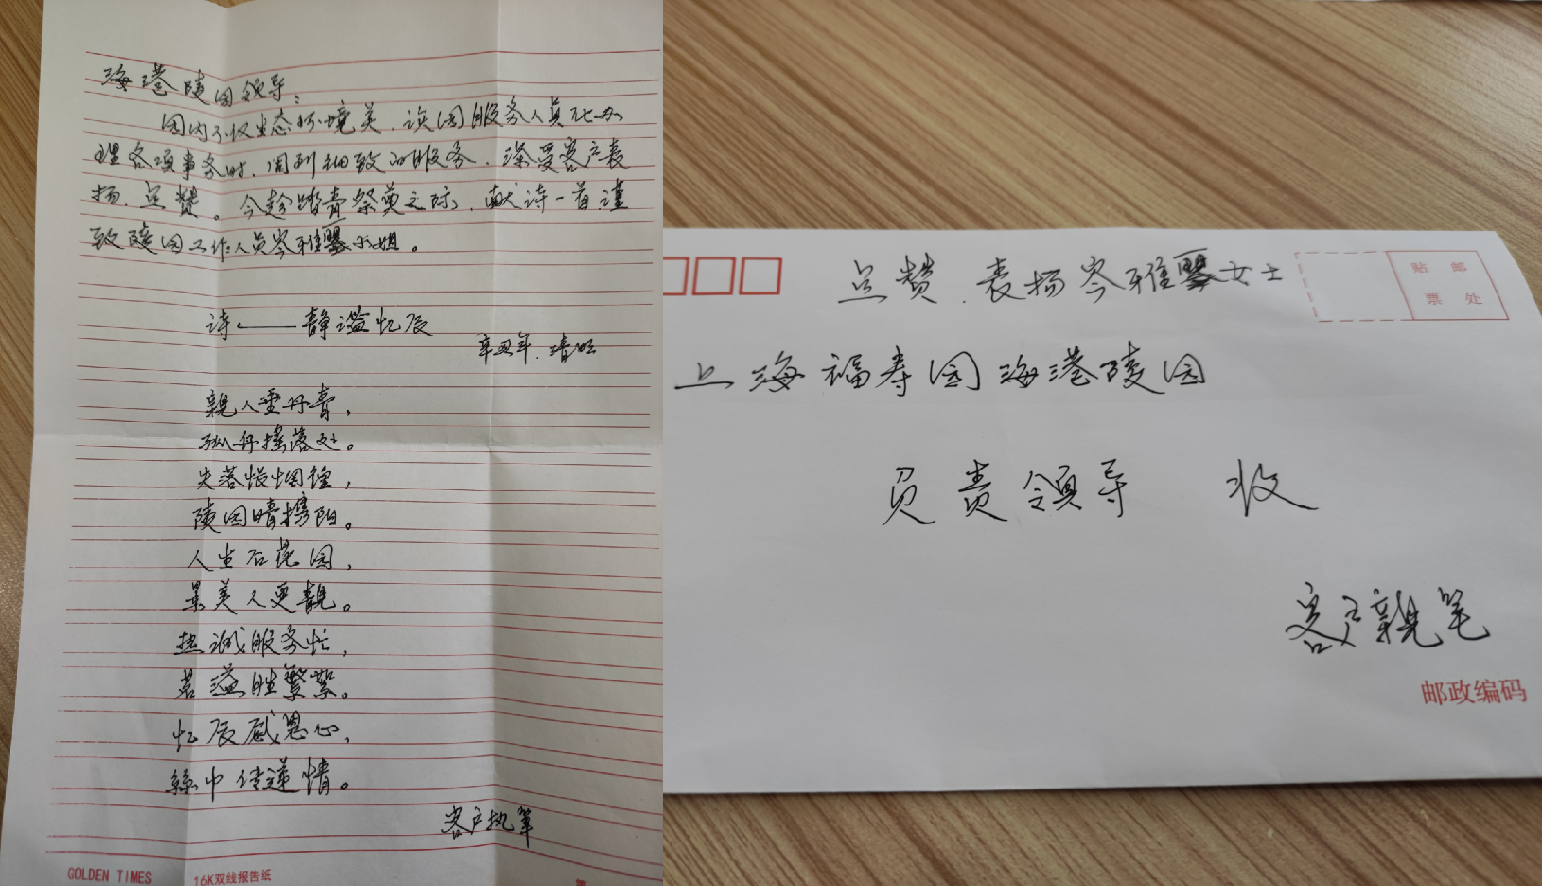 海港陵园领导：
园内不仅生态环境美，该园服务人员在办
理各项事务时，周到细致的服务，深受客户表
扬、点赞。今趁踏青祭奠之际，献诗一首谨
致陵园工作人员岑雅馨小姐。
诗——静谧忆辰
辛丑年.清明
亲人重丹青，
孤舟摇落处。
失落怅惘惶，
陵园晴携阳。
人生后花园，
景美人更靓。
热诚服务忙，
茗溢胜繁絮。
忆辰感恩心，
丝巾传递情。
客户执笔
GOLDEN TIMES
16K双线报告纸
点赞、表扬岑雅馨女士
贴 邮
票 处
上海福寿园海港陵园
负责领导 收
客户亲笔
邮政编码